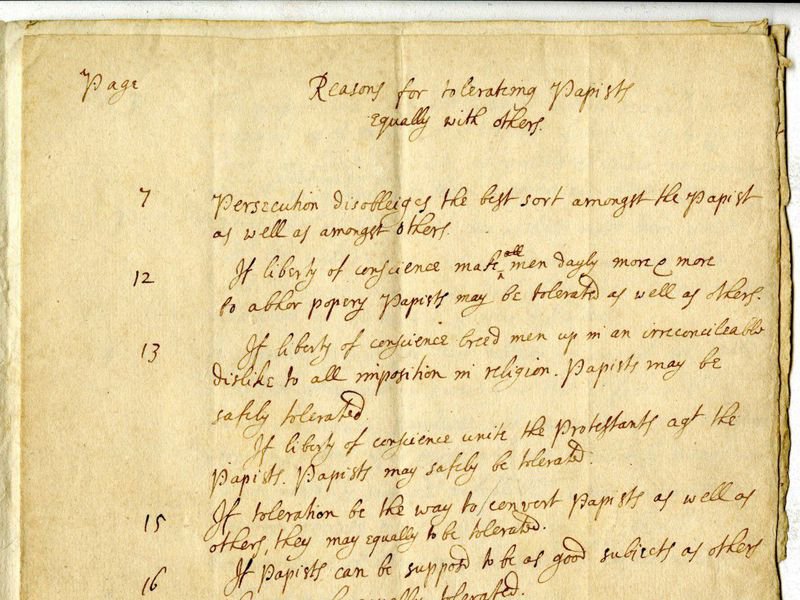 Page
Reasons for tolerateing Papists
equally with others.
7 Persecution disobleiges the best sort amongst the Papist
as well as amongst others.
12 If liberty of conscience make all men dayly more & more
to abhor popery Papists may be tolerated as well as others.
13 If liberty of conscience breed men up in an irreconcileable
dislike to all imposition in religion. Papists may be
safely tolerated.
If liberty of conscience unite the Protestants agt the
Papists. Papists may safely be tolerated.
15 If toleration be the way to convert Papists as well as
others, they may equally to be tolerated.
16 If Papists can be supposd to be as good subjects as others
equally tolerated.